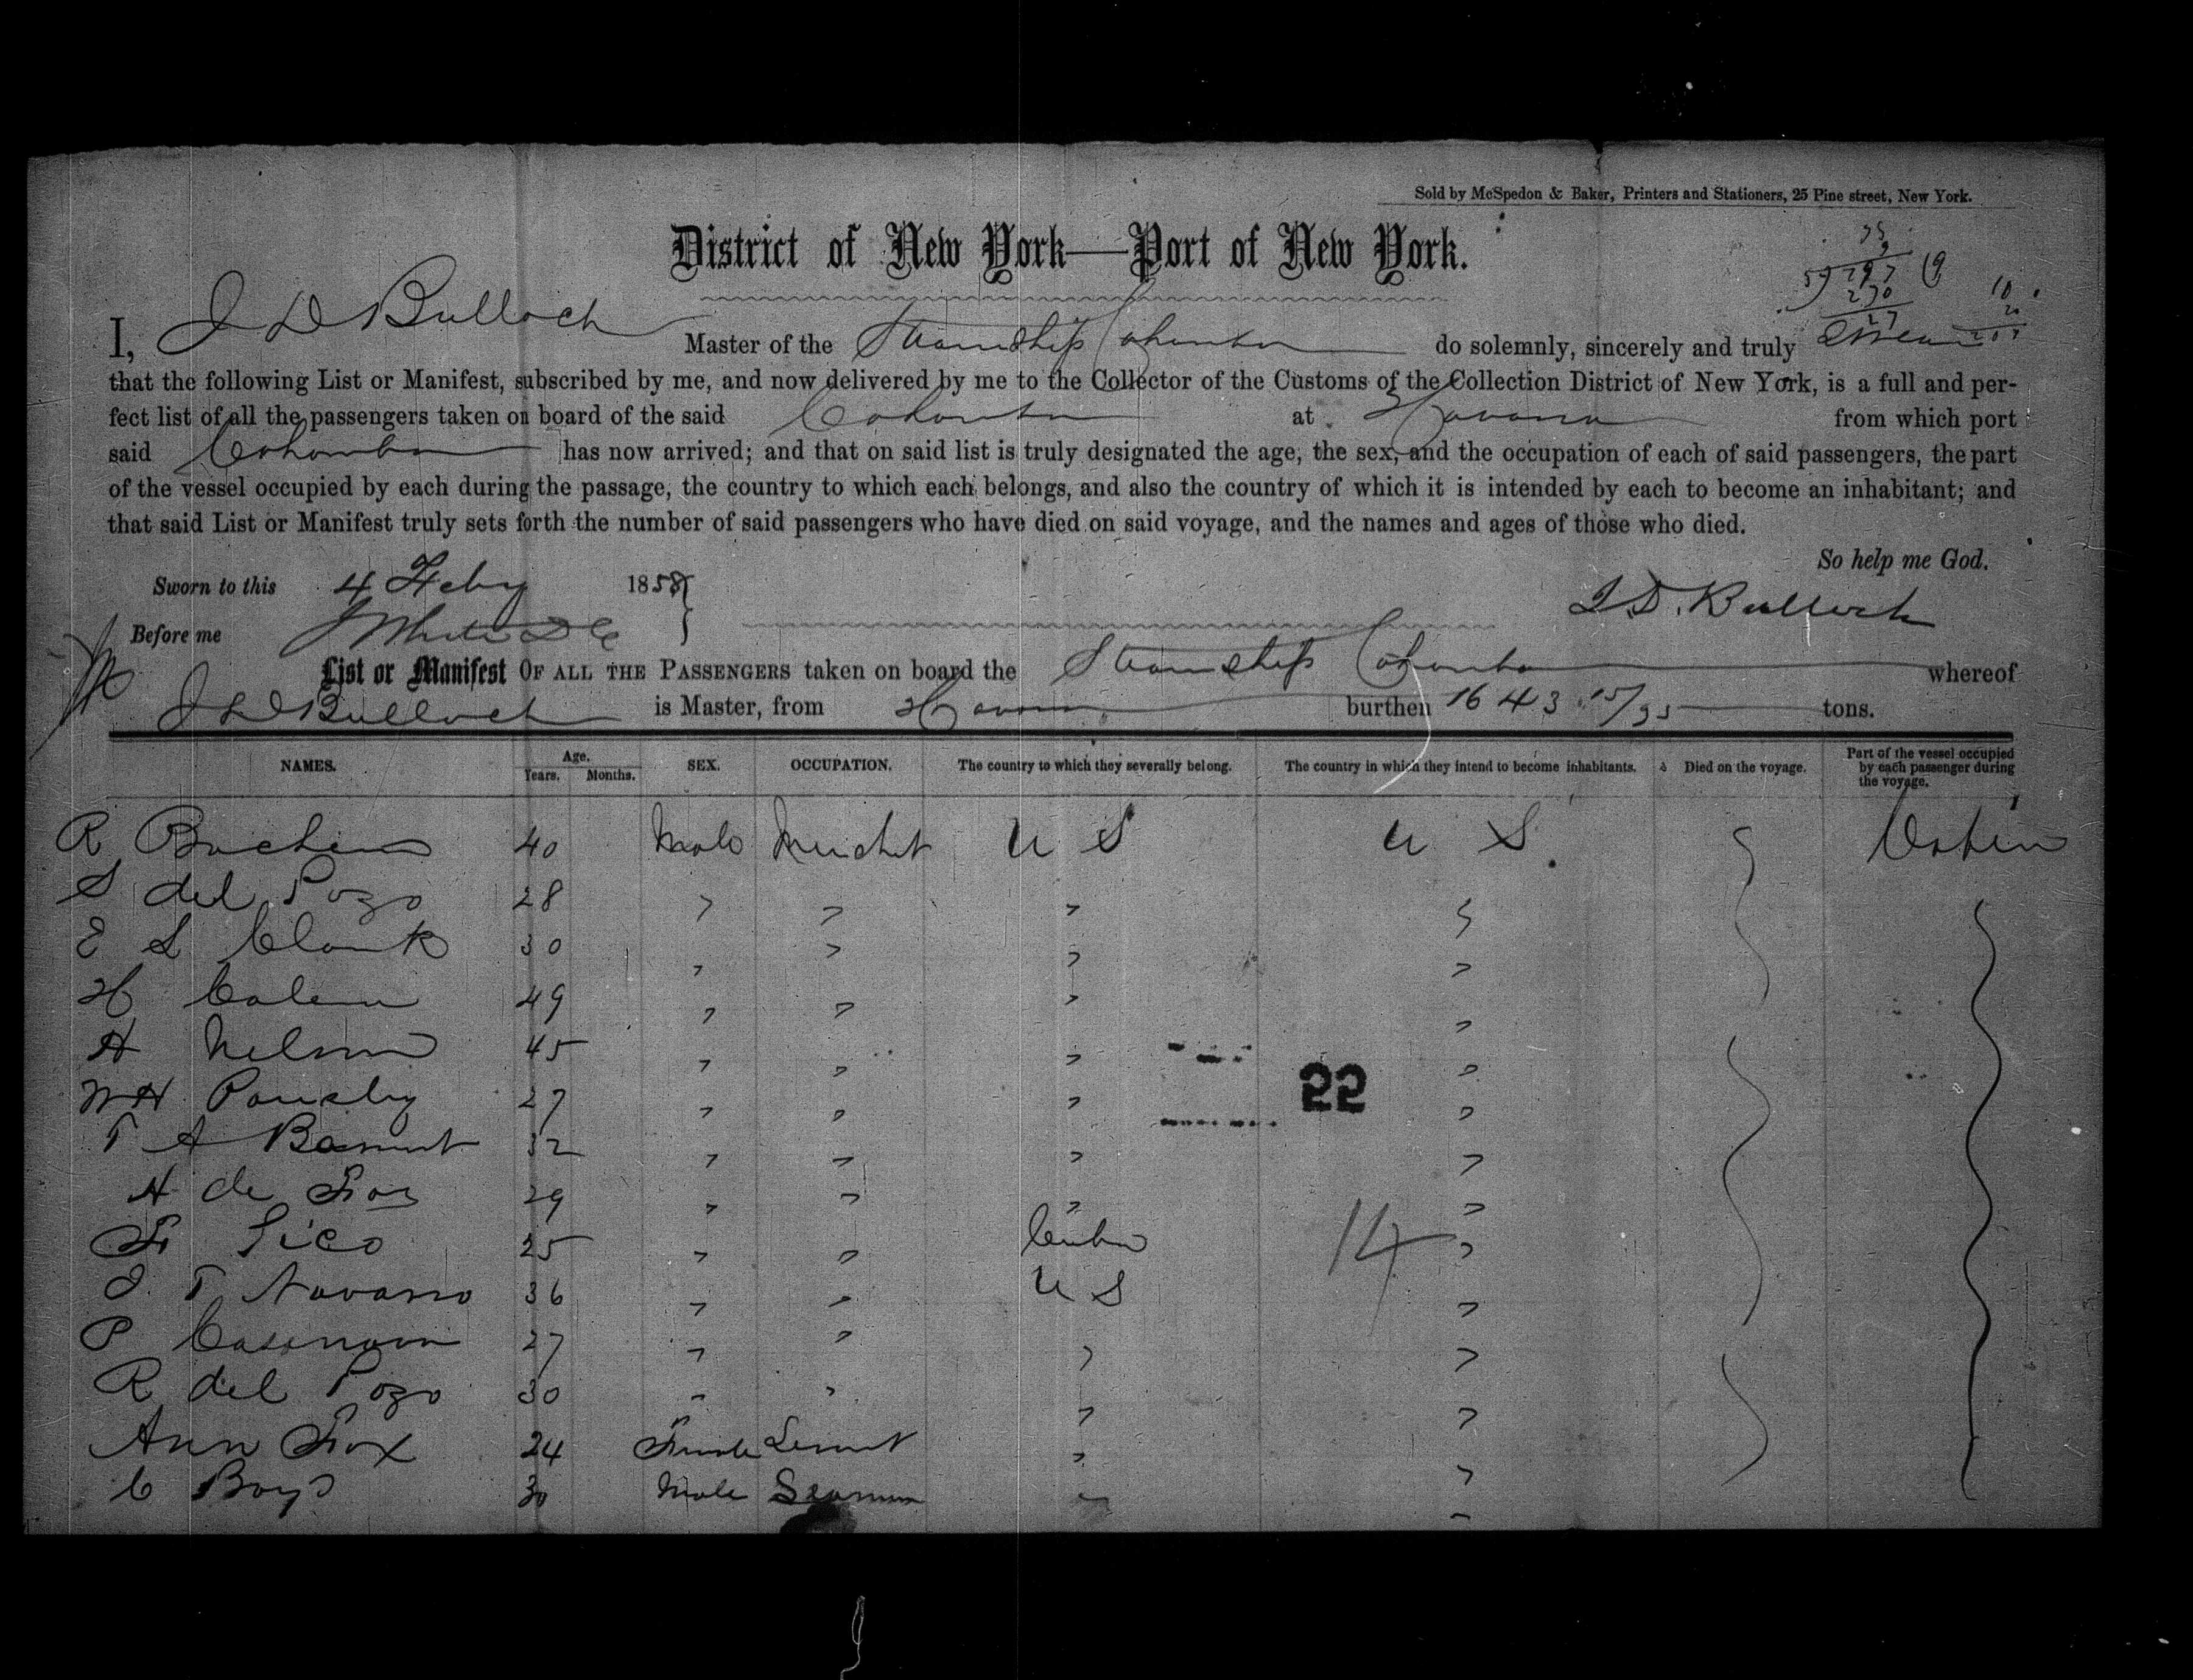 Sold by McSpedon & Baker, Printers and Stationers, 25 Pine street, New York.
District of New York—Port of New York.
I, J D Bulloch Master of the Steamship Cahawba do solemnly, sincerely and truly Swear
that the following List or Manifest, subscribed by me, and now delivered by me to the Collector of the Customs of the Collection District of New York, is a full and per-
fect list of all the passengers taken on board of the said Cahawba at Havana from which port
said Cahawba has now arrived; and that on said list is truly designated the age, the sex, and the occupation of each of said passengers, the part
of the vessel occupied by each during the passage, the country to which each belongs, and also the country of which it is intended by each to become an inhabitant; and
that said List or Manifest truly sets forth the number of said passengers who have died on said voyage, and the names and ages of those who died.
So help me God.
Sworn to this 4 Feby 1858
J. D. Bulloch
Before me J White
List or Manifest OF ALL THE PASSENGERS taken on board the Steamship Cahawba whereof
J D Bulloch is Master, from Havana burthen 1643 15/95 tons.
NAMES. Age. Years. Months. SEX. OCCUPATION. The country to which they severally belong. The country in which they intend to become inhabitants. Died on the voyage. Part of the vessel occupied by each passenger during the voyage.
R 40 Male Merchat U S U S Cabin
S del Pozo 28 " " " "
E S Clark 30 " " " "
H 49 " " " "
A Nelson 45 " " " "
W H 27 " " " "
22
T A 32 " " " "
A de 29 " " " "
F 25 " " Cuba "
14
J. T Navarro 36 " " U S "
P Casanova 27 " " " "
R del Pozo 30 " " " "
Ann Fox 24 Female Servnt " "
C Boys 30 Male Seaman " "